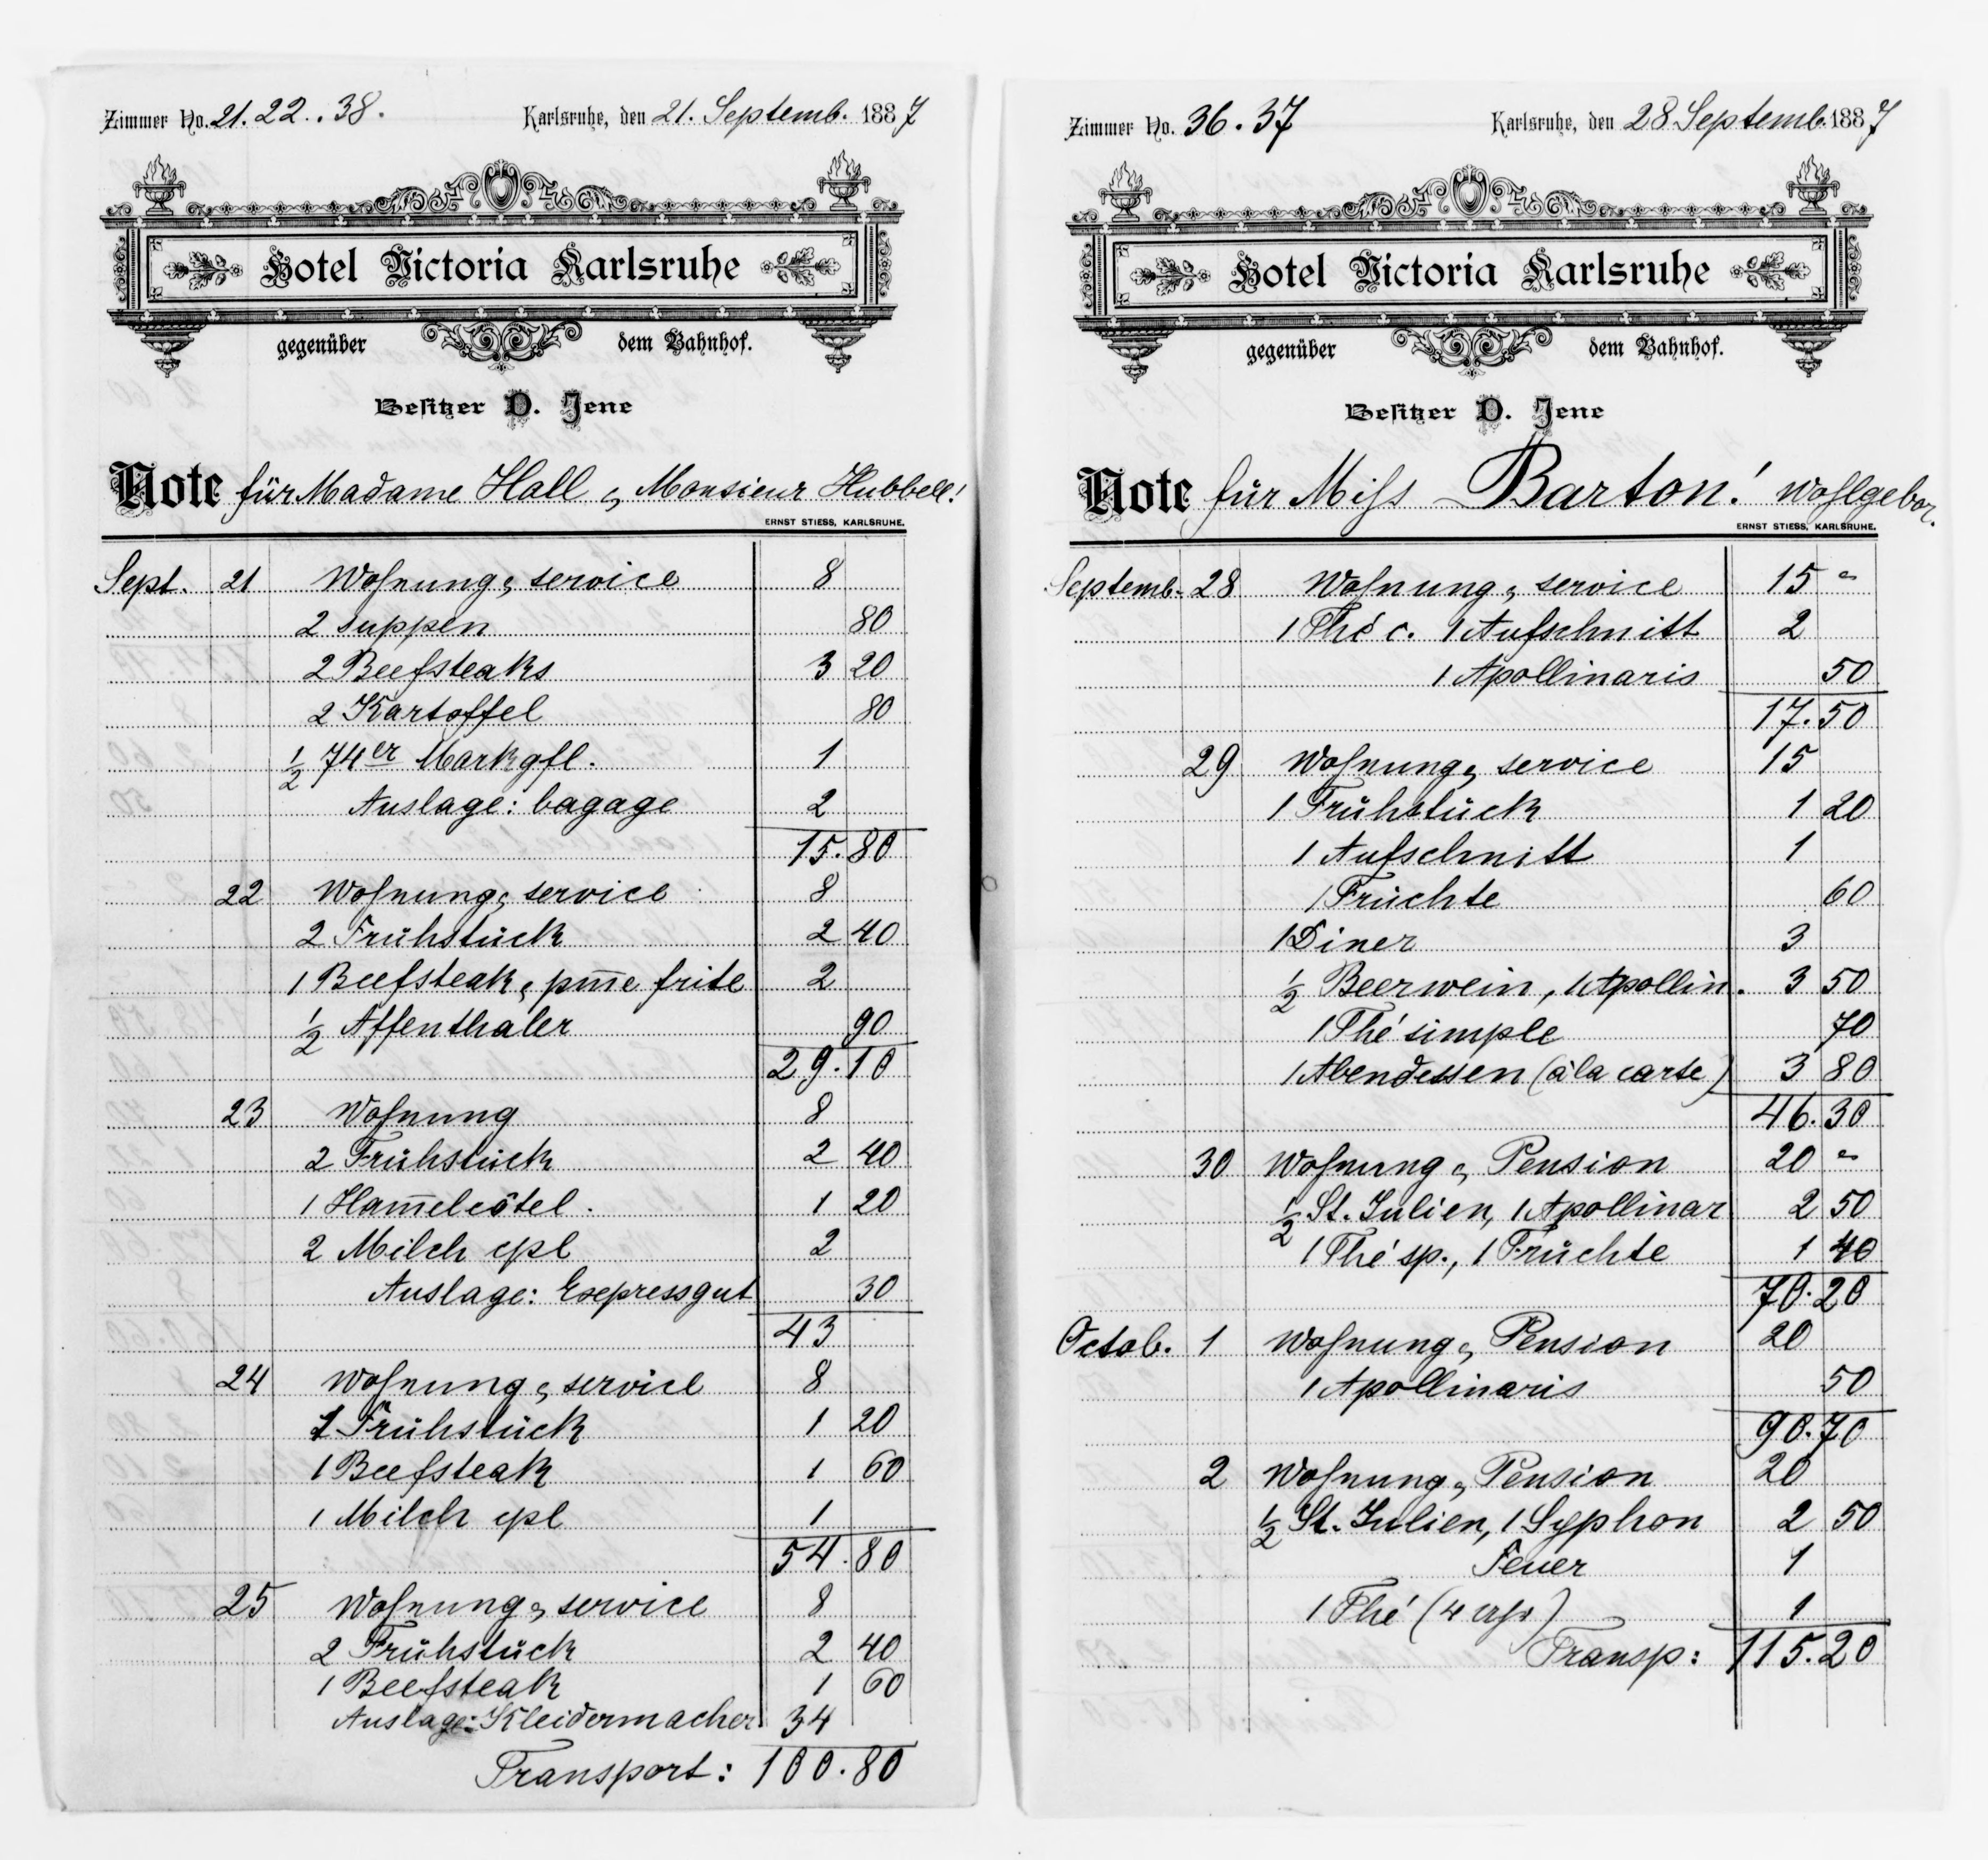 Zimmer No. 21. 22. . 38. Karlsruhe, den 21. Septemb. 1887
Hotel Victoria Karlsruhe
gegenüber dem Bahnhof.
Besitzer D. Jene
Note für Madame Hall & Monsieur Hubbell!
ERNST STIESS, KARLSRUHE.
Sept. 21 Wohnung & service 8
2 Suppen 80
2 Beefsteaks 3 20
2 Kartoffel 80
½ 74er Markgfl. 1
Auslage: bagage 2
15.80
22 Wohnung & service 8
2 Frühstück 2 40
1 Beefsteak & pme frite 2
½ Affenthaler 90
29.10
23 Wohnung 8
2 Frühstück 2 40
1 Ham̅elcôtel. 1 20
2 Milch cpl 2
Auslage: Expressgut 30
43
24 Wohnung & service 8
1 Frühstück 1 20
1 Beefsteak 1 60
1 Milch cpl 1
54.80
25 Wohnung & service 8
2 Frühstück 2 40
1 Beefsteak 1 60
Auslage: Kleidermacher 34
Transport: 100.80
Zimmer No. 36. 37 Karlsruhe, den 28 Septemb. 1887
Hotel Victoria Karlsruhe
gegenüber dem Bahnhof.
Besitzer D. Jene
Note für Miss Barton! Wohlgebor.
ERNST STIESS, KARLSRUHE.
Septemb. 28 Wohnung & service 15 "
1 Thé c. 1 Aufschnitt 2
1 Apollinaris 50
17.50
29 Wohnung & service 15
1 Frühstück 1 20
1 Aufschnitt 1
1 Früchte 60
1 Diner 3
½ Beerwein, 1 Apollin. 3 50
1 Thé simple 70
1 Abendessen (à la carte) 3 80
46.30
30 Wohnung & Pension 20 "
½ St. Julien, 1 Apollinar 2 50
1 Thé sp., 1 Früchte 1 40
70.20
Octob. 1 Wohnung & Pension 20
1 Apollinaris 50
90.70
2 Wohnung & Pension 20
½ St. Julien, 1 Syphon 2 50
Feuer 1
1 Thé (4 Uhr) 1
Transp: 115.20